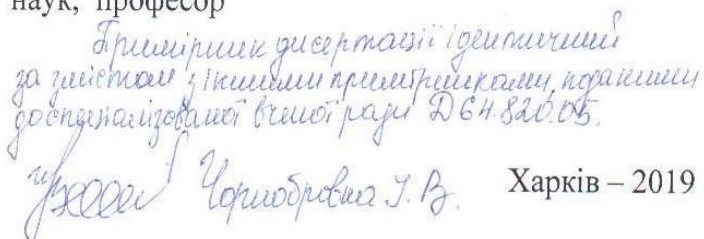 наук, професор
Примірник дисертації ідентичний
за змістом з іншими примірниками, поданими
до спеціалізованої вченої ради Д 64.820.05.
Чорнобровка І. В. Харків – 2019